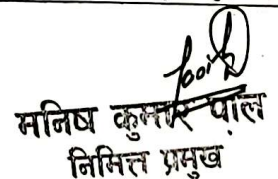 मनिष कुमार पाल
निमित्त प्रमुख